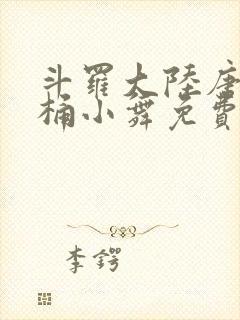 斗羅大陸唐
桶小舞免費
李鍔